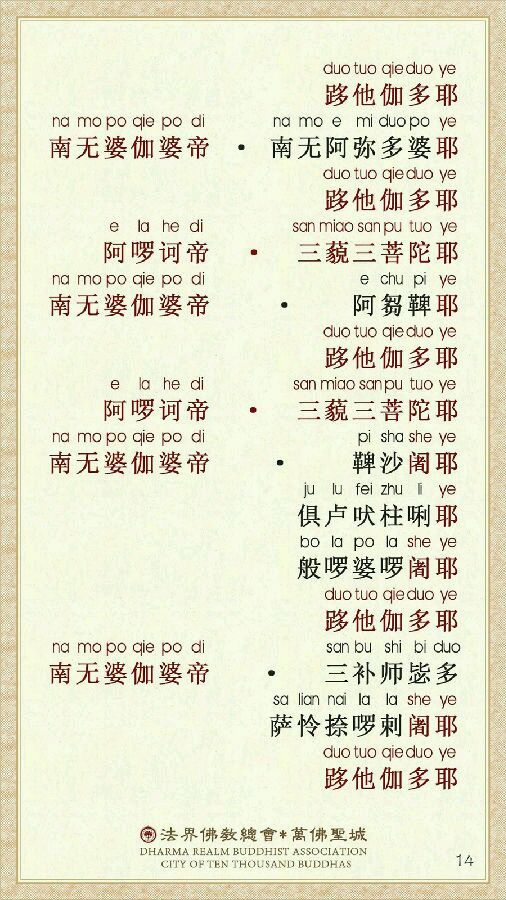 duo tuo qie duo ye
跢他伽多耶
na mo po qie po di na mo e mi duo po ye
南无婆伽婆帝 • 南无阿弥多婆耶
duo tuo qie duo ye
跢他伽多耶
e la he di san miao san pu tuo ye
阿啰诃帝 • 三藐三菩陀耶
na mo po qie po di e chu pi ye
南无婆伽婆帝 • 阿芻鞞耶
duo tuo qie duo ye
跢他伽多耶
e la he di san miao san pu tuo ye
阿啰诃帝 • 三藐三菩陀耶
na mo po qie po di pi sha she ye
南无婆伽婆帝 • 鞞沙阇耶
ju lu fei zhu li ye
俱卢吠柱唎耶
bo la po la she ye
般啰婆啰阇耶
duo tuo qie duo ye
跢他伽多耶
na mo po qie po di san bu shi bi duo
南无婆伽婆帝 • 三补师毖多
sa lian nai la la she ye
萨怜捺啰剌阇耶
duo tuo qie duo ye
跢他伽多耶
法界佛教總會*萬佛聖城
DHARMA REALM BUDDHIST ASSOCIATION
CITY OF TEN THOUSAND BUDDHAS
14